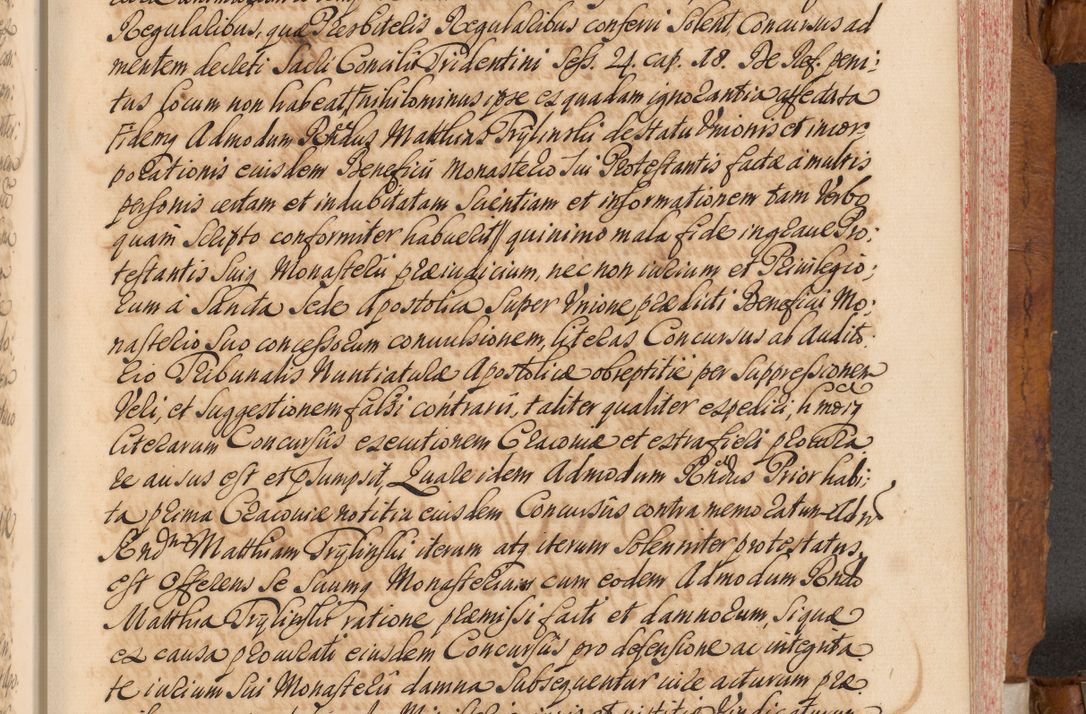 Regularibus, quæ Presbiteris Regularibus conferri solent, Concursus ad
mentem decreti Sacri Concilii Tridentini Sess. 24. cap. 18. De Ref. peni:
tus locum non habeat, nihilominus ipse ex quadam ignorantia affectata
Fidem Admodum Rndus Matthias Trylinskii de statu Unionis et incor:
porationis eiusdem Beneficii Monasterio Sui Protestantis factæ à multis
personis certam et indubitatam Scientiam et informationem tam Verbo
quam Scripto conformiter habuerit quinimo mala fide in grave Pro:
testantis Suiq Monasterii præiudicium, nec non iurium et Privilegio:
rum à Sancta Sede Apostolica Super Unione prædicti Beneficii Mo:
nasterio Suo concessorum convulsionem, literas Concursus ab Audito:
rio Tribunalis Nuntiaturæ Apostolicæ obreptitie per Suppressionem
Veri, et Suggestionem falsi contrarii, taliter qualiter expedici, hmoi
literarum Concursûs executionem Cracoviæ et extra fieri procura
re ausus est et Sumpsit, Quare idem Admodum Rndus Prior habi:
ta prima Cracoviæ notitia eiusdem Concursûs contra memoratum Adm
Rndm Matthiam Trylinskii iterum atq iterum Solenniter protestatus
est offerens Se Suumq Monasterium cum eodem Admodum Rndo
Matthia Trylinskii ratione præmissi facti et damnorum, Si quæ
ex causa procurati eiusdem Concursûs pro defensione ac integrita
te iurium Sui Monasterii damna Subsequentur iure acturum præ